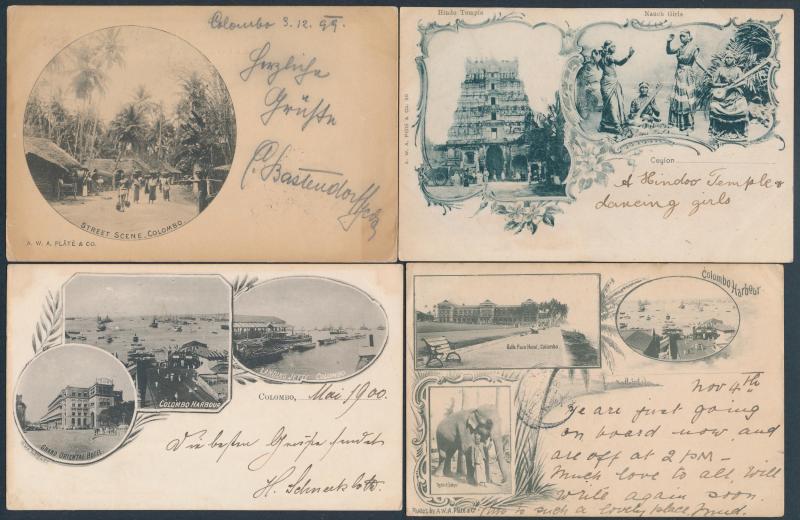 Colombo 3.12.99.
Herzliche
Grüße
STREET SCENE, COLOMBO.
A. W. A. PLÂTÉ & CO.
Hindo Temple
Nauch Girls
Ceylon
A Hindoo Temple &
dancing girls
COLOMBO HARBOUR
LANDING JETTY COLOMBO
GRAND ORIENTAL HOTEL
COLOMBO, Mai 1900.
Die besten Grüße sendet
Colombo Harbour
Galle Face Hotel, Colombo
Nov 4th
We are just going
on board now and
are off at 2 PM –
Much love to all, Will
write again soon.
This is such a lovely place,
Publ. by A.W.A. Plâté & Co